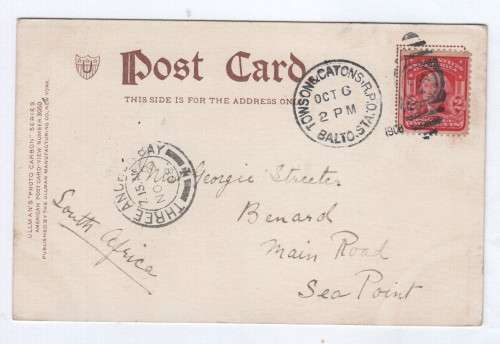 Post Card
THIS SIDE IS FOR THE ADDRESS ON
ULLMAN'S "PHOTO CARBON" SERIES.
AMERICAN POST CARD VIEW NUMBER
PUBLISHED BY THE ULLMAN MANUFACTURING CO., NEW YORK.
TOWSON & CATONS. R.P.O.
OCT 6
2 PM
BALTO. STA.
THREE ANCHOR BAY
NOV
Georgie Streeter
Benard
Main Road
Sea Point
South Africa